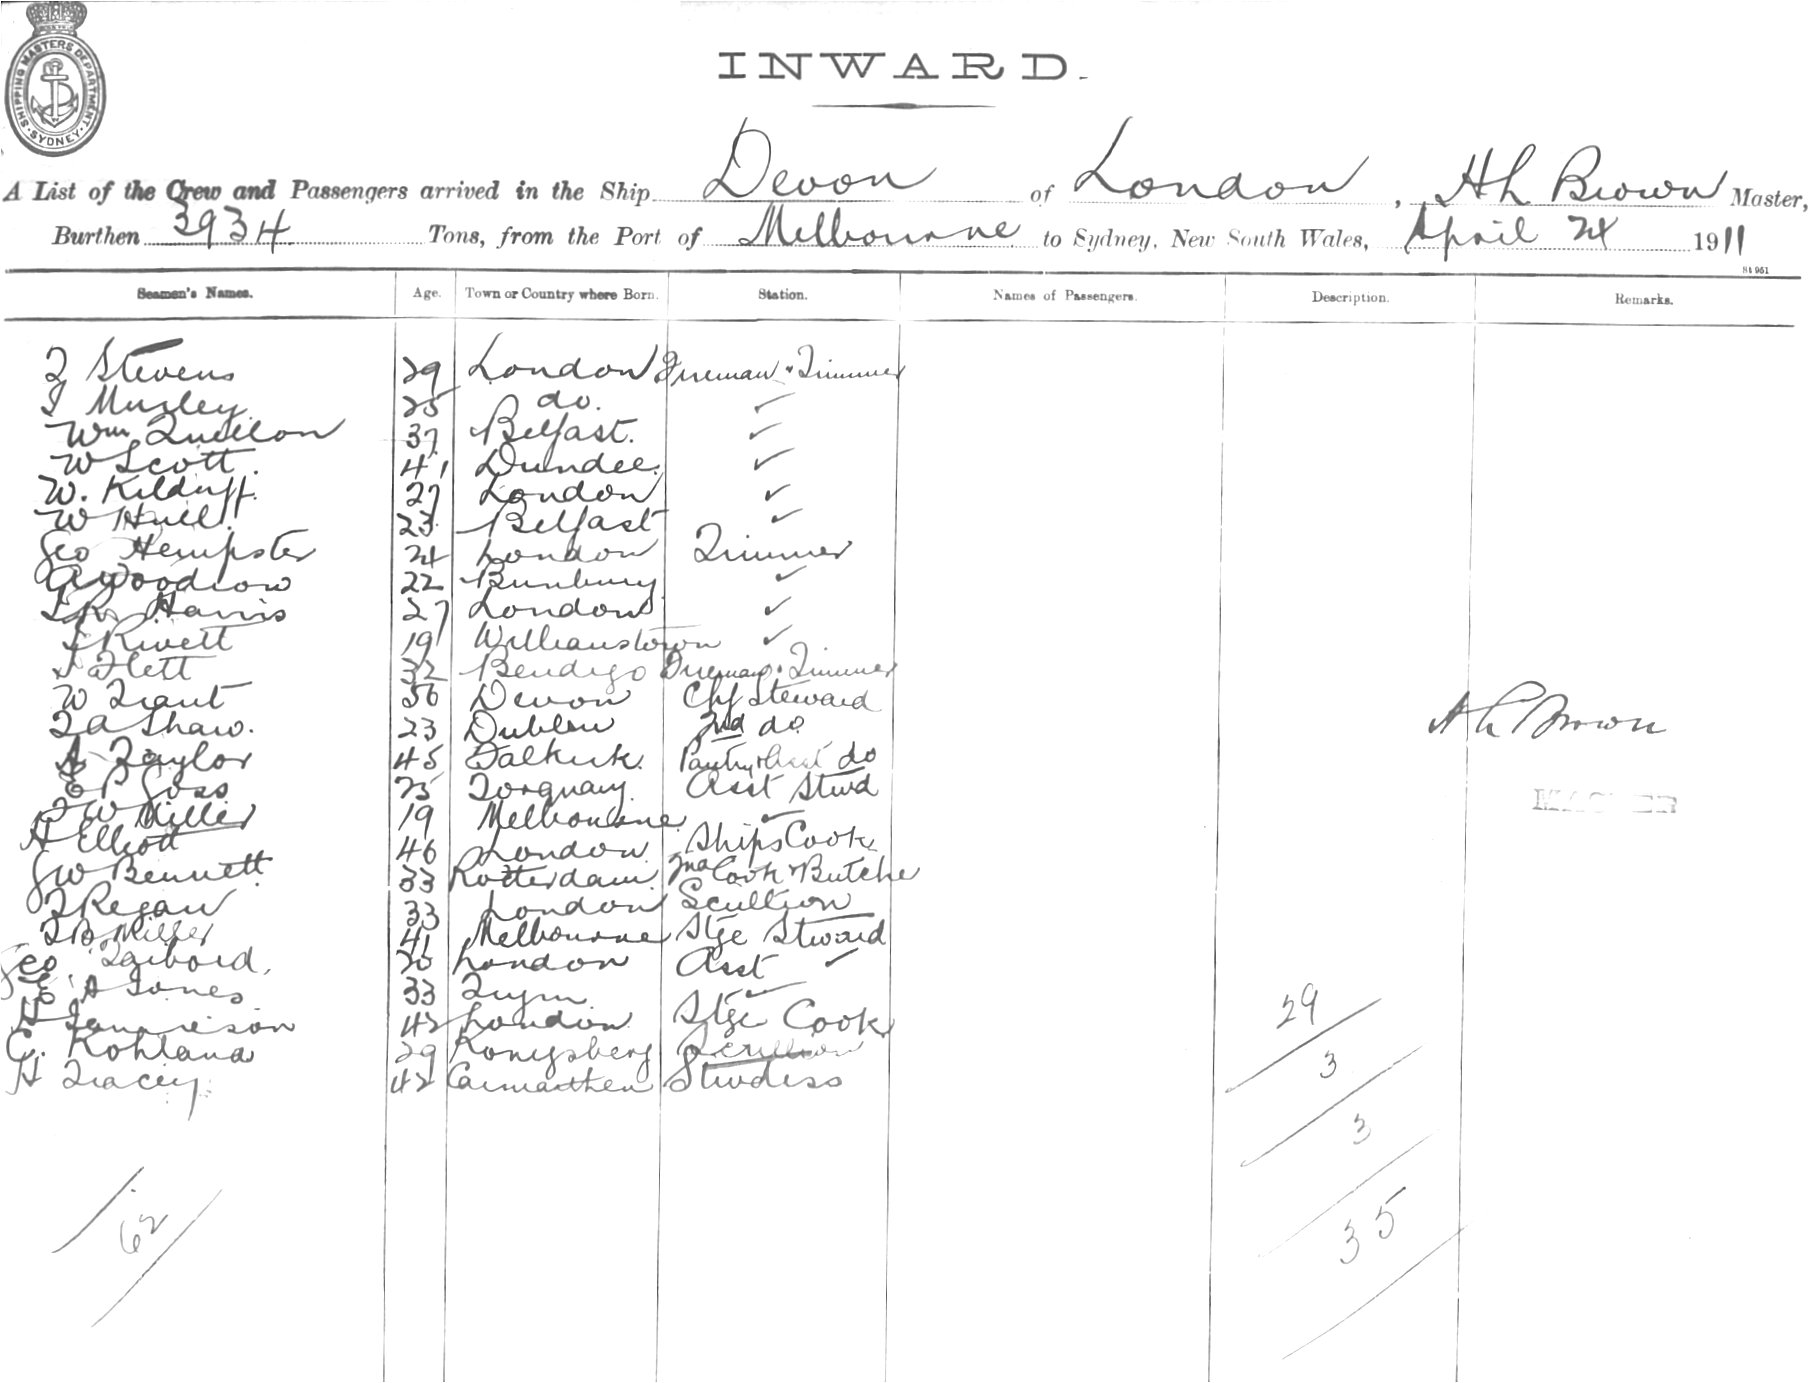 SHIPPING MASTERS DEPARTMENT · SYDNEY ·
INWARD.
A List of the Crew and Passengers arrived in the Ship Devon of London, Master,
Burthen 3934 Tons, from the Port of Melbourne to Sydney, New South Wales, April 24 1911
Seamen's Names. Age. Town or Country where Born. Station. Names of Passengers. Description. Remarks.
Stevens 29 London Fireman & Trimmer
25 do. ✓
Wm 37 Belfast. ✓
W Scott. 41 Dundee. ✓
W. Kilduff. 27 London ✓
W Hull 23 Belfast ✓
Geo Hempster 24 London Trimmer
Woodrow 22 Bunbury ✓
Harris 27 London ✓
Rivett 19 Williamstown ✓
Flett 32 Bendigo Fireman & Trimmer
W 56 Devon Chf Steward
Shaw. 23 Dublin 2nd do
Taylor 45 Falkirk do
E P Goss 25 Torquay Asst Stwd
Miller 19 Melbourne ✓
H Elliott 46 London Ships Cook
GW Bennett 33 Rotterdam 2nd Cook & Butcher
Regan 33 London Scullion
Miller 41 Melbourne Stge Steward
Geo London Asst ✓
E A Jones 33 ✓
42 London Stge Cook
29 Konigsberg Scullion
H Tracey 42 Carmarthen Stwdess
Brown
MASTER
29
3
3
35
62